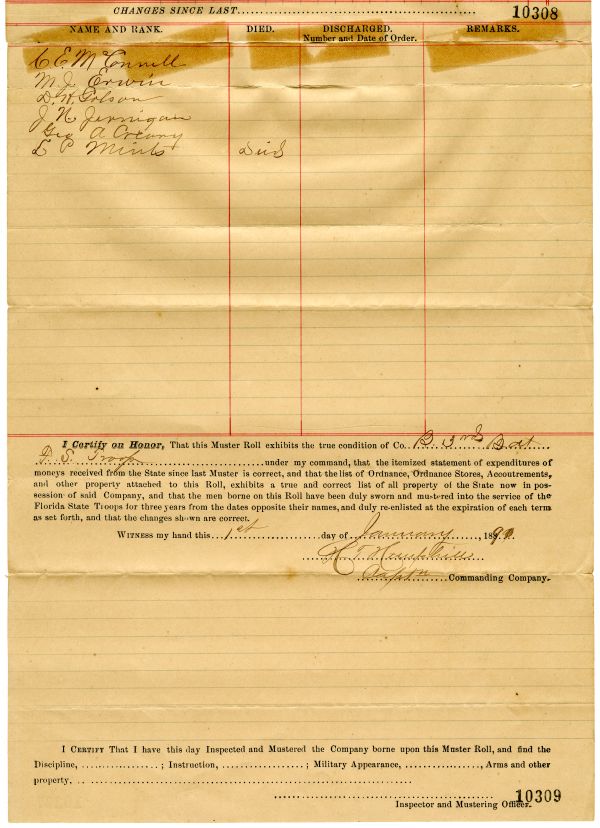 CHANGES SINCE LAST
10308
NAME AND RANK. DIED. DISCHARGED. Number and Date of Order. REMARKS.
C E McConnell
M. J. Erwin
D. H. Golson
J N Jernigan
Geo A Creary
L P Mints Died
I Certify on Honor, That this Muster Roll exhibits the true condition of Co. B. 3rd Bat
F. S. Troop under my command, that the itemized statement of expenditures of
moneys received from the State since last Muster is correct, and that the list of Ordnance, Ordnance Stores, Accoutrements,
and other property attached to this Roll, exhibits a true and correct list of all property of the State now in pos-
session of said Company, and that the men borne on this Roll have been duly sworn and mustered into the service of the
Florida State Troops for three years from the dates opposite their names, and duly re-enlisted at the expiration of each term
as set forth, and that the changes shown are correct.
WITNESS my hand this 1st day of January, 189
Capt Commanding Company.
I CERTIFY That I have this day Inspected and Mustered the Company borne upon this Muster Roll, and find the
Discipline, ; Instruction, ; Military Appearance, , Arms and other
property,
10309
Inspector and Mustering Officer.